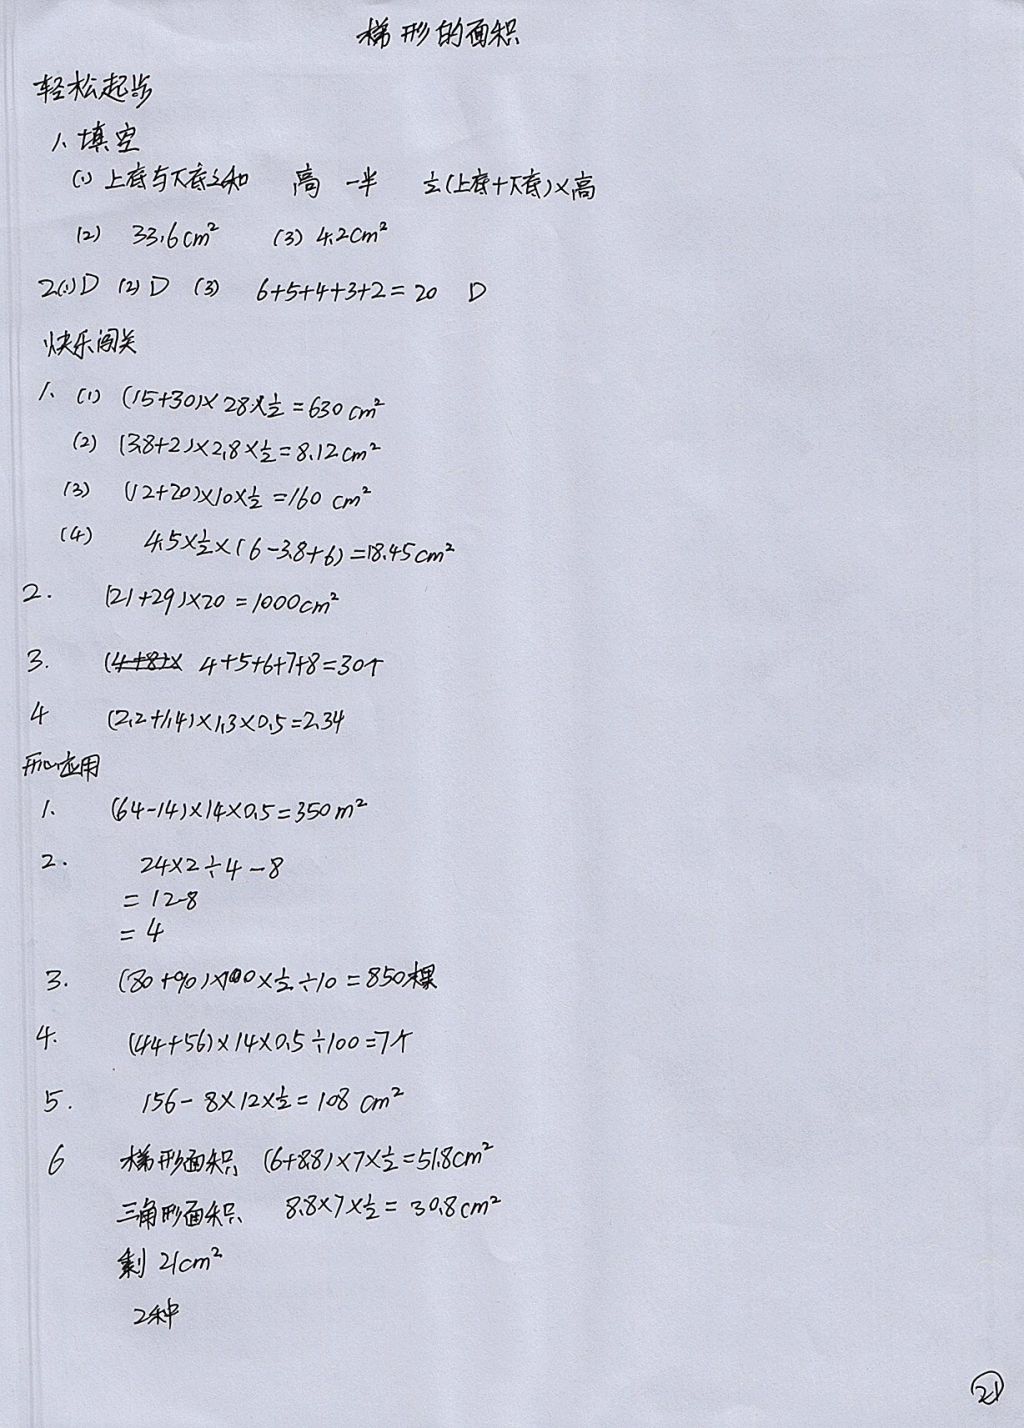 梯形的面积
轻松起步
1、填空
(1) 上底与下底之和 高 一半 ½(上底+下底)×高
(2) 33.6cm² (3) 4.2cm²
2(1)D (2)D (3) 6+5+4+3+2=20 D
快乐闯关
1、(1) (15+30)×28×½=630cm²
(2) (3.8+2)×2.8×½=8.12cm²
(3) (12+20)×10×½=160 cm²
(4) 4.5×½×(6-3.8+6)=18.45cm²
2. (21+29)×20=1000cm²
3. (4+8)× 4+5+6+7+8=30个
4 (2.2+1.4)×1.3×0.5=2.34
开心应用
1. (64-14)×14×0.5=350m²
2. 24×2÷4-8
=12-8
=4
3. (80+90)×100×½÷10=850棵
4. (44+56)×14×0.5÷100=7个
5. 156-8×12×½=108 cm²
6 梯形面积 (6+8.8)×7×½=51.8cm²
三角形面积 8.8×7×½=30.8cm²
剩 21cm²
2种
21